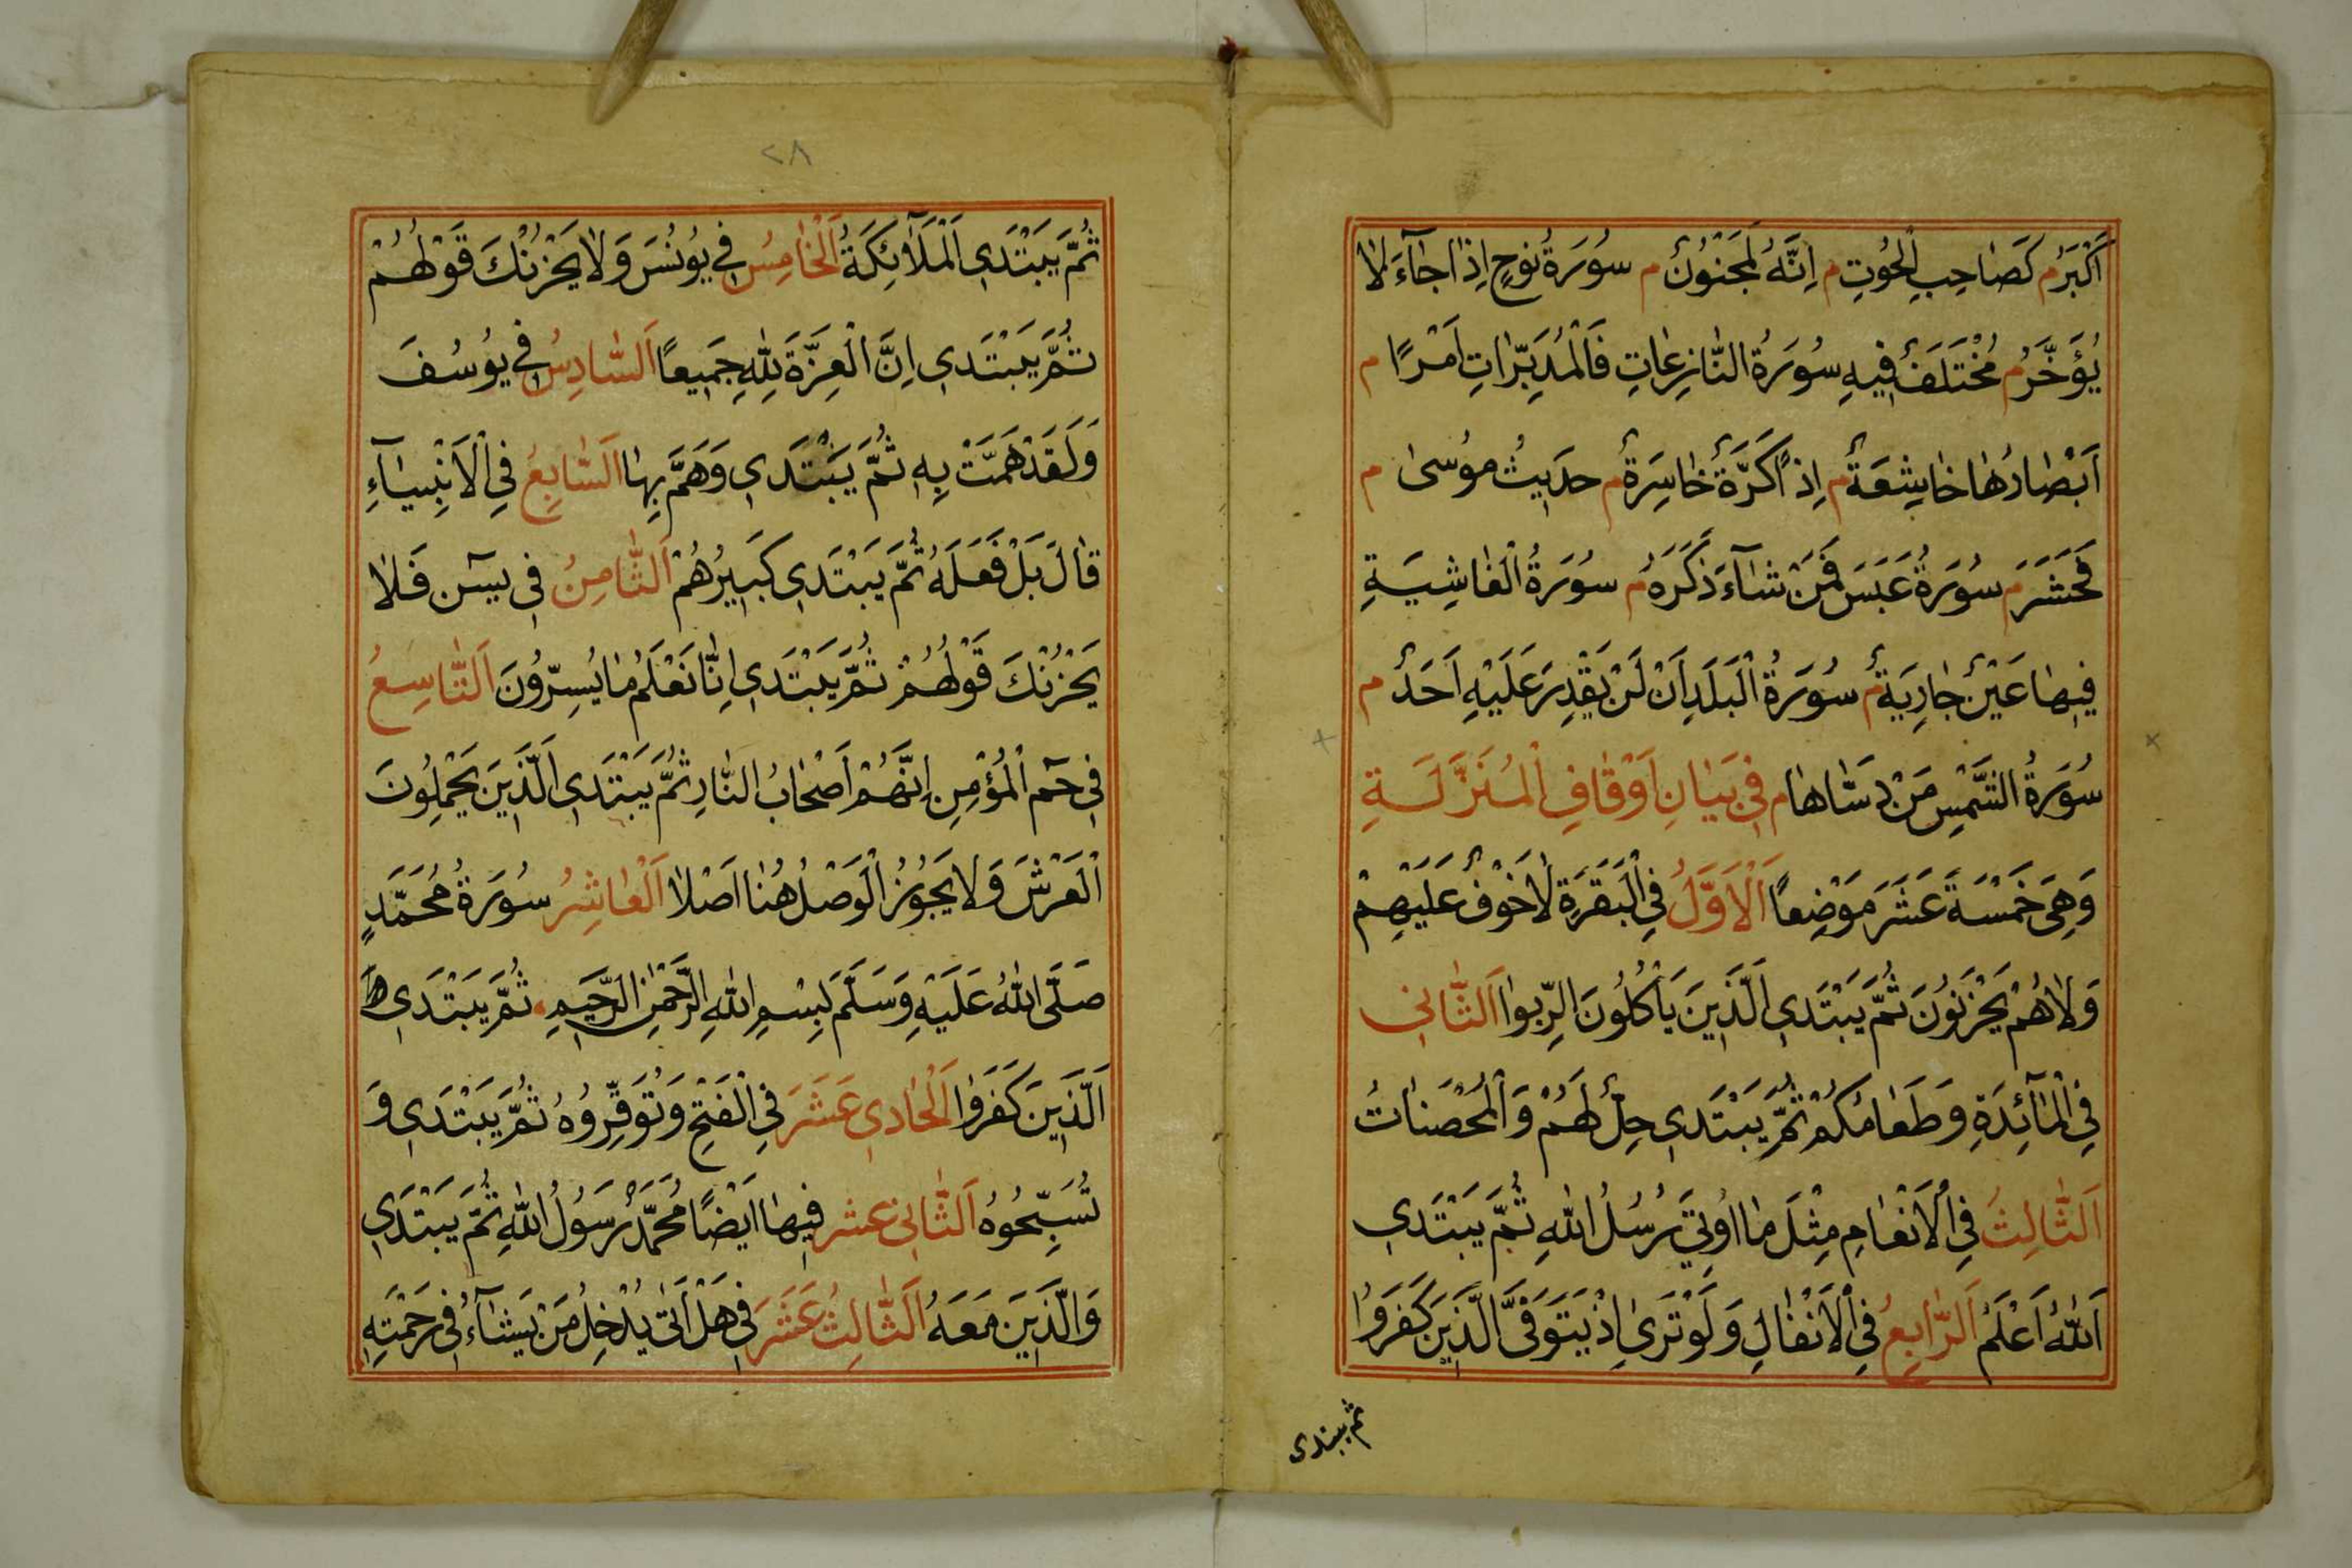 اَكْبَرُ م كَصَاحِبِ الْحُوتِ م اِنَّهُ لَمَجْنُونٌ م سُورَةُ نُوحٍ اِذَا جَاءَ لَا
يُؤَخَّرُ م مُخْتَلَفٌ فِيهِ سُورَةُ النَّازِعَاتِ فَالْمُدَبِّرَاتِ اَمْرًا م
اَبْصَارُهَا خَاشِعَةٌ م اِذًا كَرَّةٌ خَاسِرَةٌ م حَدِيثُ مُوسَى م
فَحَشَرَ م سُورَةُ عَبَسَ فَمَنْ شَاءَ ذَكَرَهُ م سُورَةُ الْغَاشِيَةِ
فِيهَا عَيْنٌ جَارِيَةٌ م سُورَةُ الْبَلَدِ اَنْ لَنْ يَقْدِرَ عَلَيْهِ اَحَدٌ م
سُورَةُ الشَّمْسِ مَنْ دَسَّاهَا م فِي بَيَانِ اَوْقَافِ الْمُنَزَّلَةِ
وَهِيَ خَمْسَةَ عَشَرَ مَوْضِعًا اَلْاَوَّلُ فِي الْبَقَرَةِ لَا خَوْفٌ عَلَيْهِمْ
وَلَا هُمْ يَحْزَنُونَ ثُمَّ يَبْتَدِي الَّذِينَ يَأْكُلُونَ الرِّبَوا اَلثَّانِي
فِي الْمَائِدَةِ وَطَعَامُكُمْ ثُمَّ يَبْتَدِي حِلٌّ لَهُمْ وَالْمُحْصَنَاتُ
اَلثَّالِثُ فِي الْاَنْعَامِ مِثْلَ مَا اُوتِيَ رُسُلُ اللهِ ثُمَّ يَبْتَدِي
اَللهُ اَعْلَمُ اَلرَّابِعُ فِي الْاَنْفَالِ وَلَوْ تَرَى اِذْ يَتَوَفَّى الَّذِينَ كَفَرُوا
ثم يبتدى
٢٨
ثُمَّ يَبْتَدِي الْمَلَائِكَةُ اَلْخَامِسُ فِي يُونُسَ وَلَا يَحْزُنْكَ قَوْلُهُمْ
ثُمَّ يَبْتَدِي اِنَّ الْعِزَّةَ لِلّٰهِ جَمِيعًا اَلسَّادِسُ فِي يُوسُفَ
وَلَقَدْ هَمَّتْ بِهِ ثُمَّ يَبْتَدِي وَهَمَّ بِهَا اَلسَّابِعُ فِي الْاَنْبِيَاءِ
قَالَ بَلْ فَعَلَهُ ثُمَّ يَبْتَدِي كَبِيرُهُمْ اَلثَّامِنُ فِي يس فَلَا
يَحْزُنْكَ قَوْلُهُمْ ثُمَّ يَبْتَدِي اِنَّا نَعْلَمُ مَا يُسِرُّونَ اَلتَّاسِعُ
فِي حم الْمُؤْمِنِ اِنَّهُمْ اَصْحَابُ النَّارِ ثُمَّ يَبْتَدِي الَّذِينَ يَحْمِلُونَ
الْعَرْشَ وَلَا يَجُوزُ الْوَصْلُ هُنَا اَصْلًا اَلْعَاشِرُ سُورَةُ مُحَمَّدٍ
صَلَّى اللهُ عَلَيْهِ وَسَلَّمَ بِسْمِ اللهِ الرَّحْمٰنِ الرَّحِيمِ ثُمَّ يَبْتَدِي ط
اَلَّذِينَ كَفَرُوا اَلْحَادِي عَشَرَ فِي الْفَتْحِ وَتُوَقِّرُوهُ ثُمَّ يَبْتَدِي وَ
تُسَبِّحُوهُ اَلثَّانِي عشر فِيهَا اَيْضًا مُحَمَّدٌ رَسُولُ اللهِ ثُمَّ يَبْتَدِي
وَالَّذِينَ مَعَهُ اَلثَّالِثُ عَشَرَ فِي هَلْ اَتَى يُدْخِلُ مَنْ يَشَاءُ فِي رَحْمَتِهِ